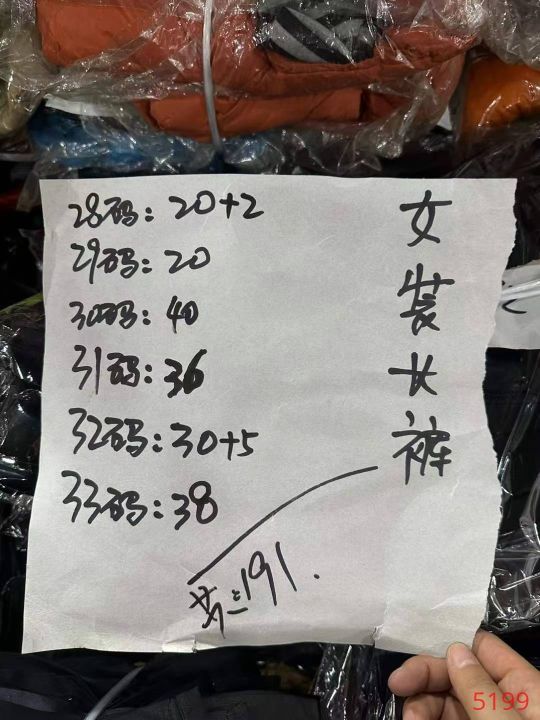 28码:20+2
29码:20
30码:40
31码:36
32码:30+5
33码:38
女装长裤
共:191.
5199